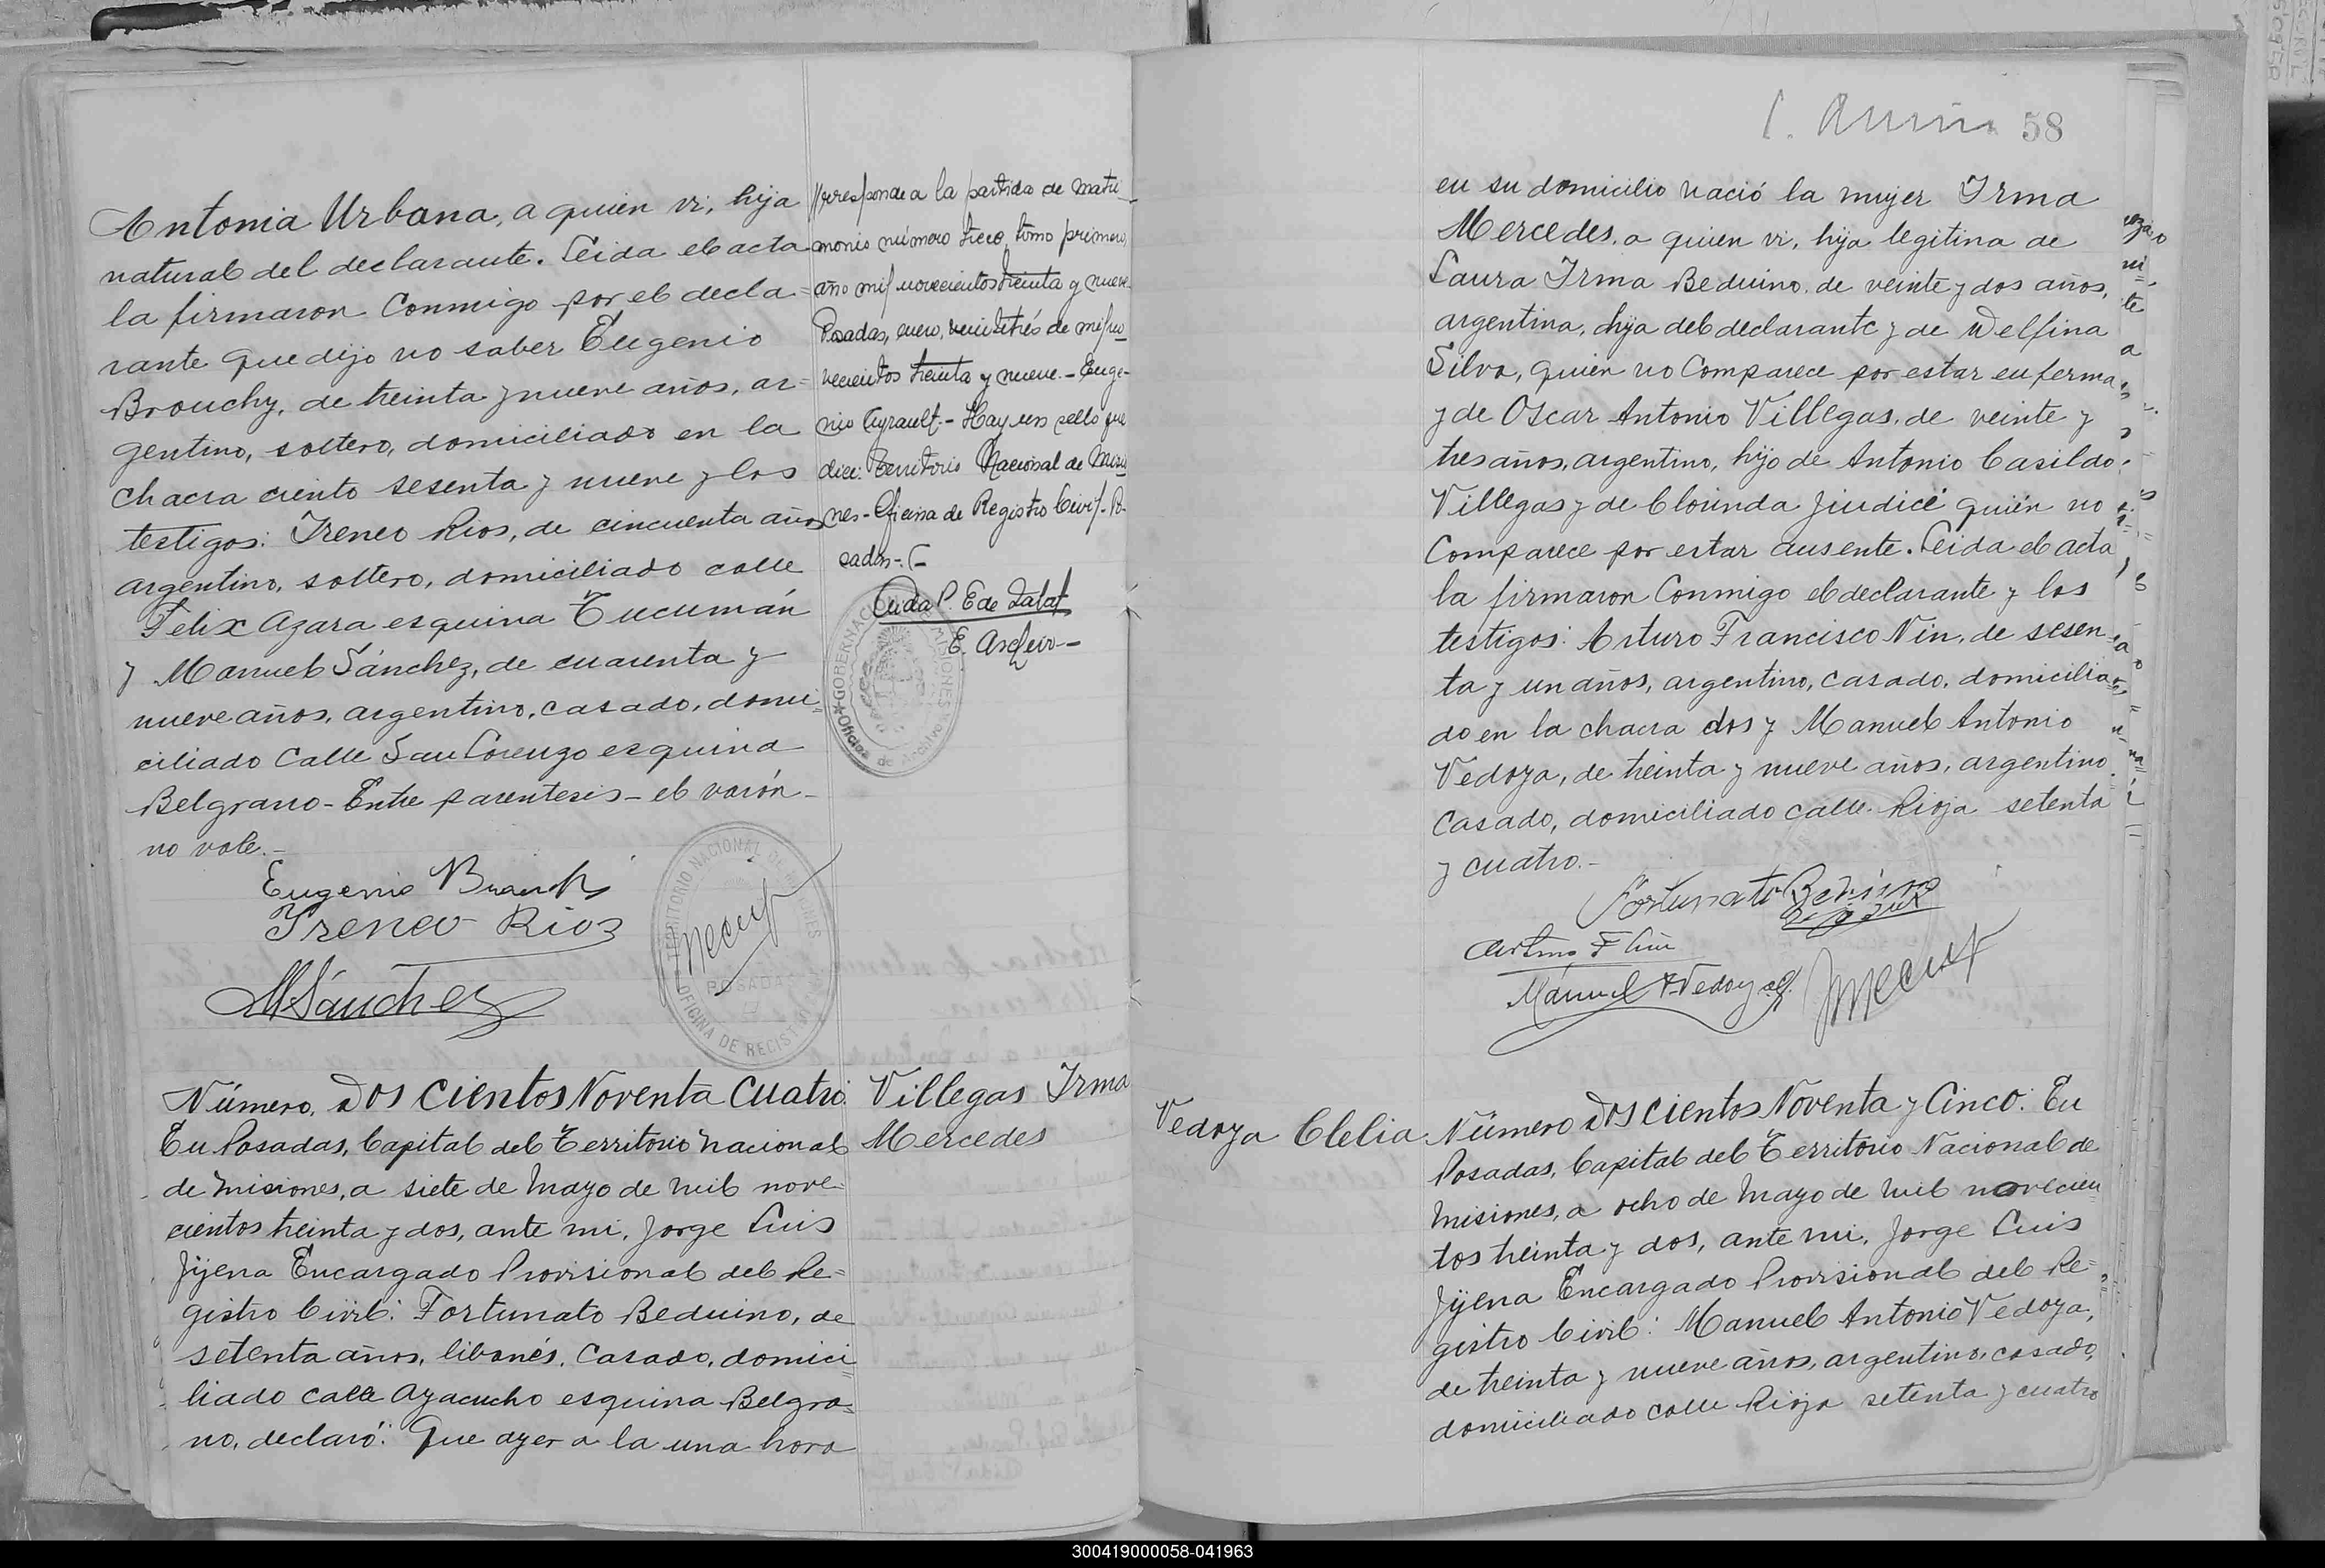 Antonia Urbana, a quien vi, hija
natural del declarante. Leida el acta
la firmaron conmigo por el decla=
rante que dijo no saber Eugenio
Brouchy, de treinta y nueve años, ar=
gentino, soltero, domiciliado en la
chacra ciento sesenta y nueve y los
testigos: Ireneo Rios, de cincuenta años
argentino, soltero, domiciliado calle
Felix Azara esquina Tucumán
y Manuel Sánchez, de cuarenta y
nueve años, argentino, casado, domi=
ciliado Calle San Lorenzo esquina
Belgrano - Entre parentesis - el varón -
no vale. -
Eugenio
Ireneo Rios
MSánchez
TERRITORIO NACIONAL DE MISIONES
POSADAS
OFICINA DE REGISTRO
rresponde a la partida de matri
monio número trece, tomo primero,
año mil novecientos treinta y nueve.
Posadas, enero, veintitrés de mil no
vecientos treinta y nueve. - Euge-
nio Ayrault. - Hay un sello que
dice: Territorio Nacional de Misio
nes - Oficina de Registro Civil - Po-
sadas -
E.
GOBERNACION DE MISIONES
Oficina de
Número, Dos cientos Noventa Cuatro.
En Posadas, Capital del Territorio Nacional
de Misiones, a siete de Mayo de mil nove=
cientos treinta y dos, ante mi, Jorge Luis
Jijena Encargado Provisional del Re=
gistro Civil: Fortunato Beduino, de
setenta años, libanés, casado, domici
liado calle Ayacucho esquina Belgra=
no, declaró: Que ayer a la una hora
Villegas Irma
Mercedes
58
en su domicilio nació la mujer Irma
Mercedes, a quien vi, hija legitina de
Laura Irma Beduino, de veinte y dos años,
argentina, hija del declarante y de Delfina
Silva, quien no comparece por estar enferma
y de Oscar Antonio Villegas, de veinte y
tres años, argentino, hijo de Antonio Casildo
Villegas y de Clorinda Jiudice quién no
comparece por estar ausente. Leida el acta
la firmaron conmigo el declarante y los
testigos: Arturo Francisco Nin, de sesen
ta y un años, argentino, casado, domicilia
do en la chacra dos y Manuel Antonio
Vedoya, de treinta y nueve años, argentino
casado, domiciliado calle Rioja setenta
y cuatro. -
Fortunato Beduino
Arturo F Nin
Manuel A Vedoya
Vedoya Clelia
Número Dos cientos Noventa y Cinco: En
Posadas, Capital del Territorio Nacional de
Misiones, a ocho de Mayo de mil novecien
tos treinta y dos, ante mi, Jorge Luis
Jijena Encargado Provisional del Re=
gistro Civil: Manuel Antonio Vedoya,
de treinta y nueve años, argentino, casado,
domiciliado calle Rioja setenta y cuatro
300419000058-041963